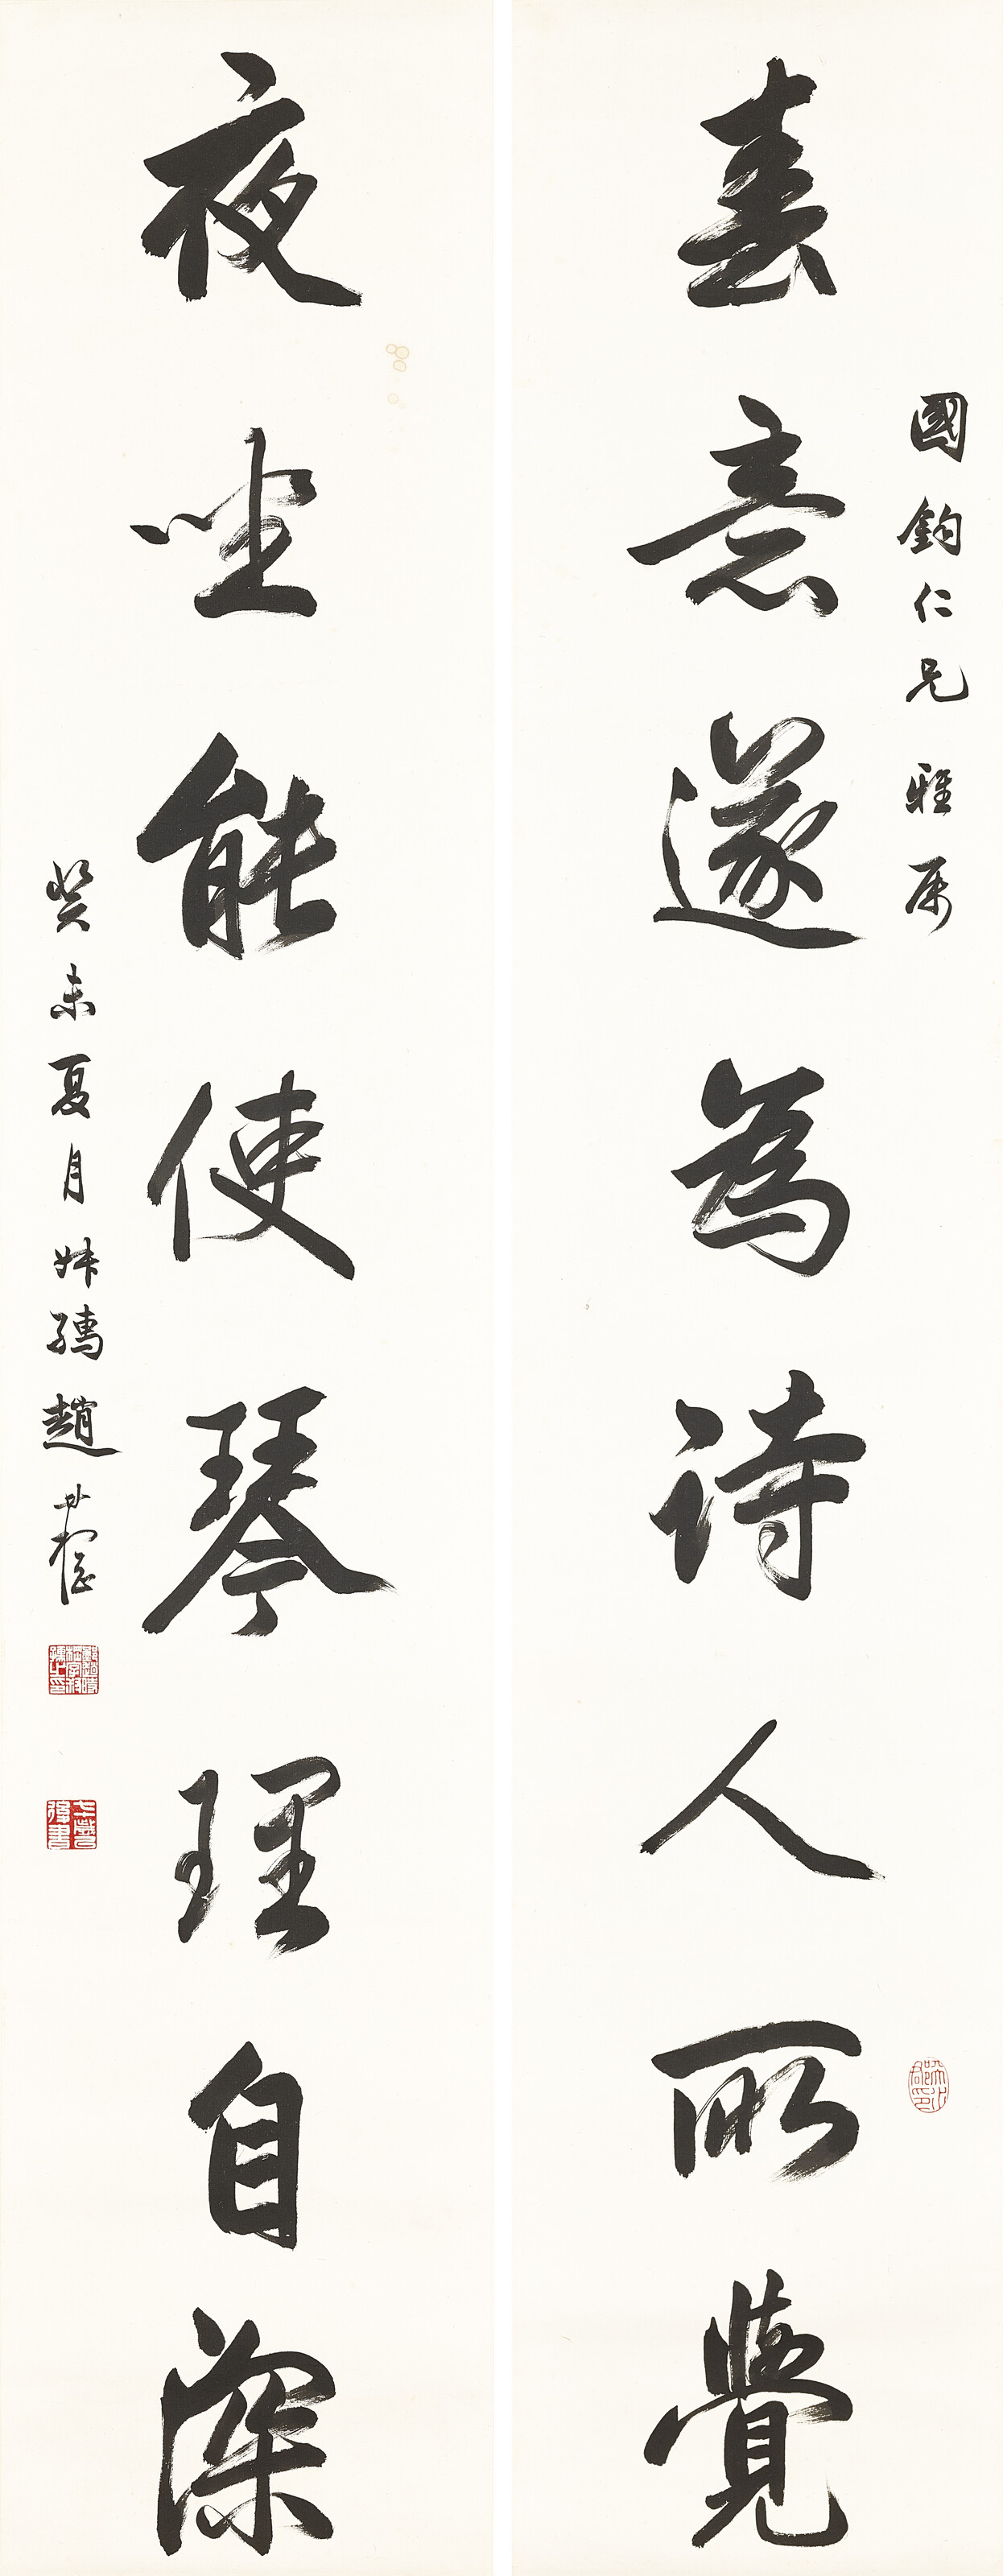 國鈞仁兄雅属
春意遂為詩人所覺
夜坐能使琴理自深
癸未夏月姊孺趙世棡